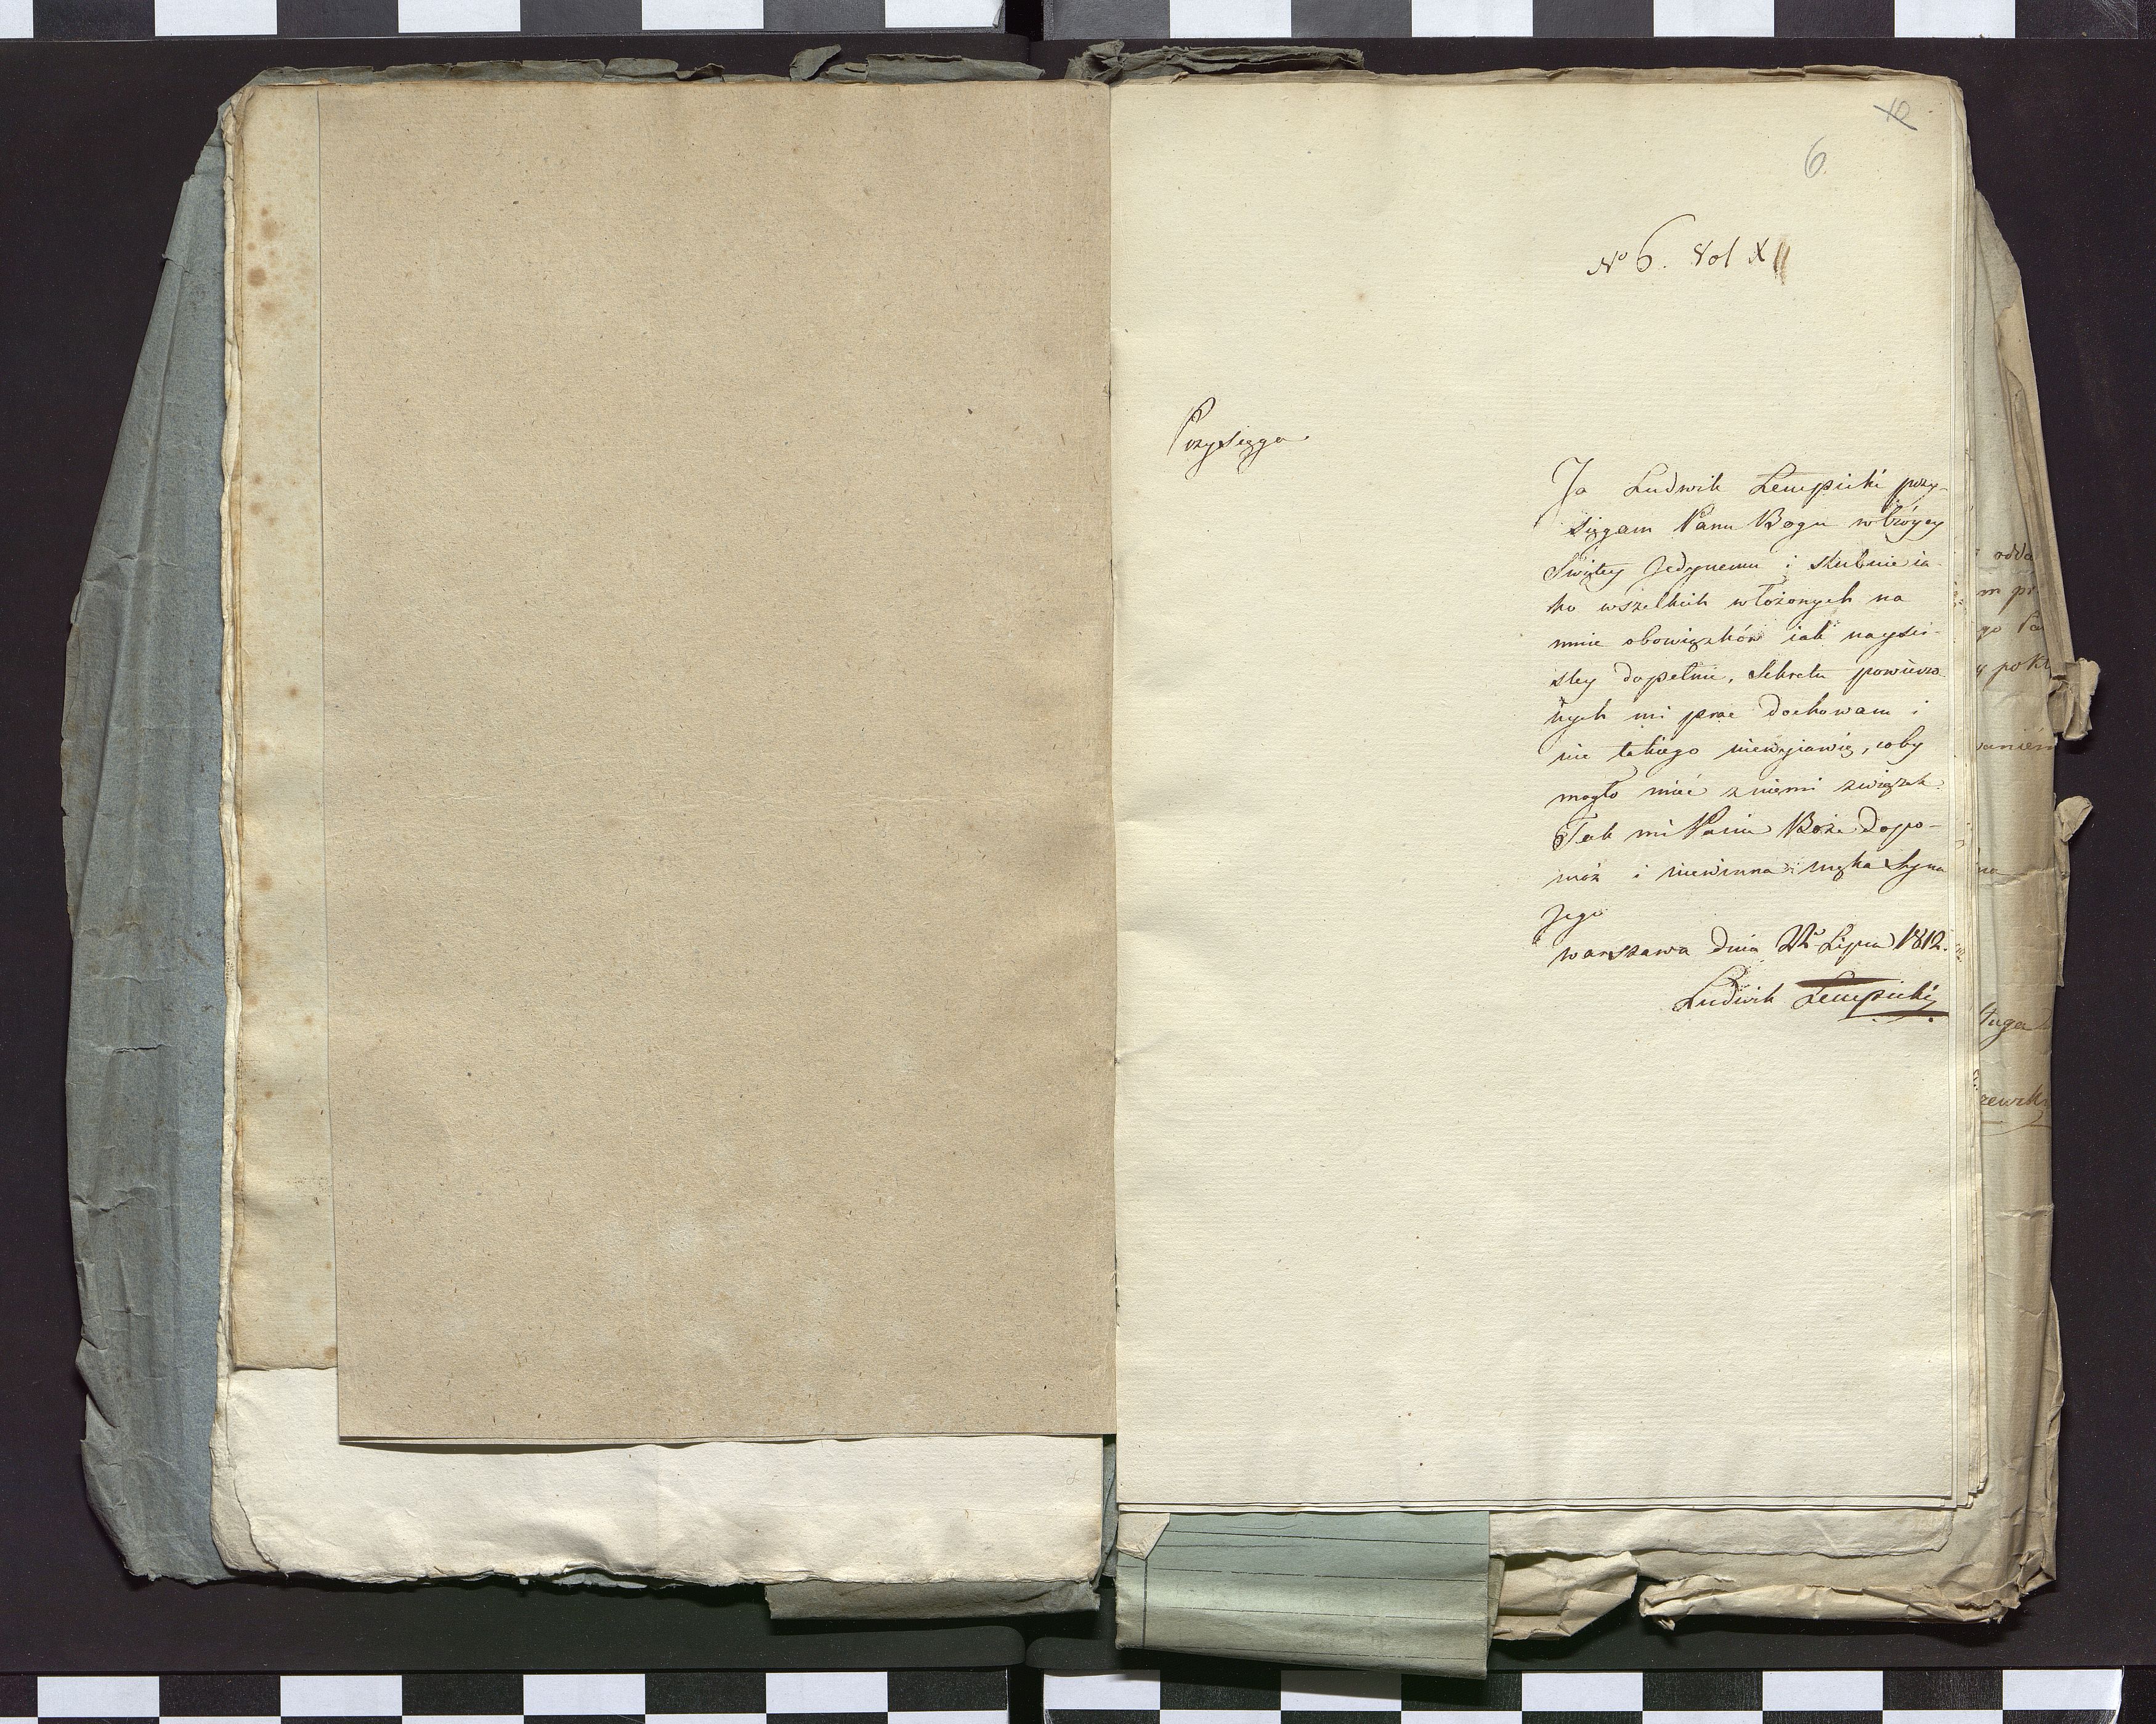 10
6.
No 6. Vol XII
Przysięga
Ja Ludwik Lempicki przy-
sięgam Panu Bogu w Tróycy
Świętey Jedynemu i ślubuie ia-
ko wszelkich włożonych na
mnie obowiązków iak nayści-
śley dopełnie, sekretu powierzo-
nych mi prac dochowam i
nic takiego niewyiawię, coby
mogło mieć z niemi związek.
Tak mi Panie Boże dopo-
móż i niewinna męka Syna
Jego
Warszawa dnia 22º Lipca 1812.
Ludwik Lempicki
odda
m pr
go Pa
y pokł
waniém
na
ługa
zewsk